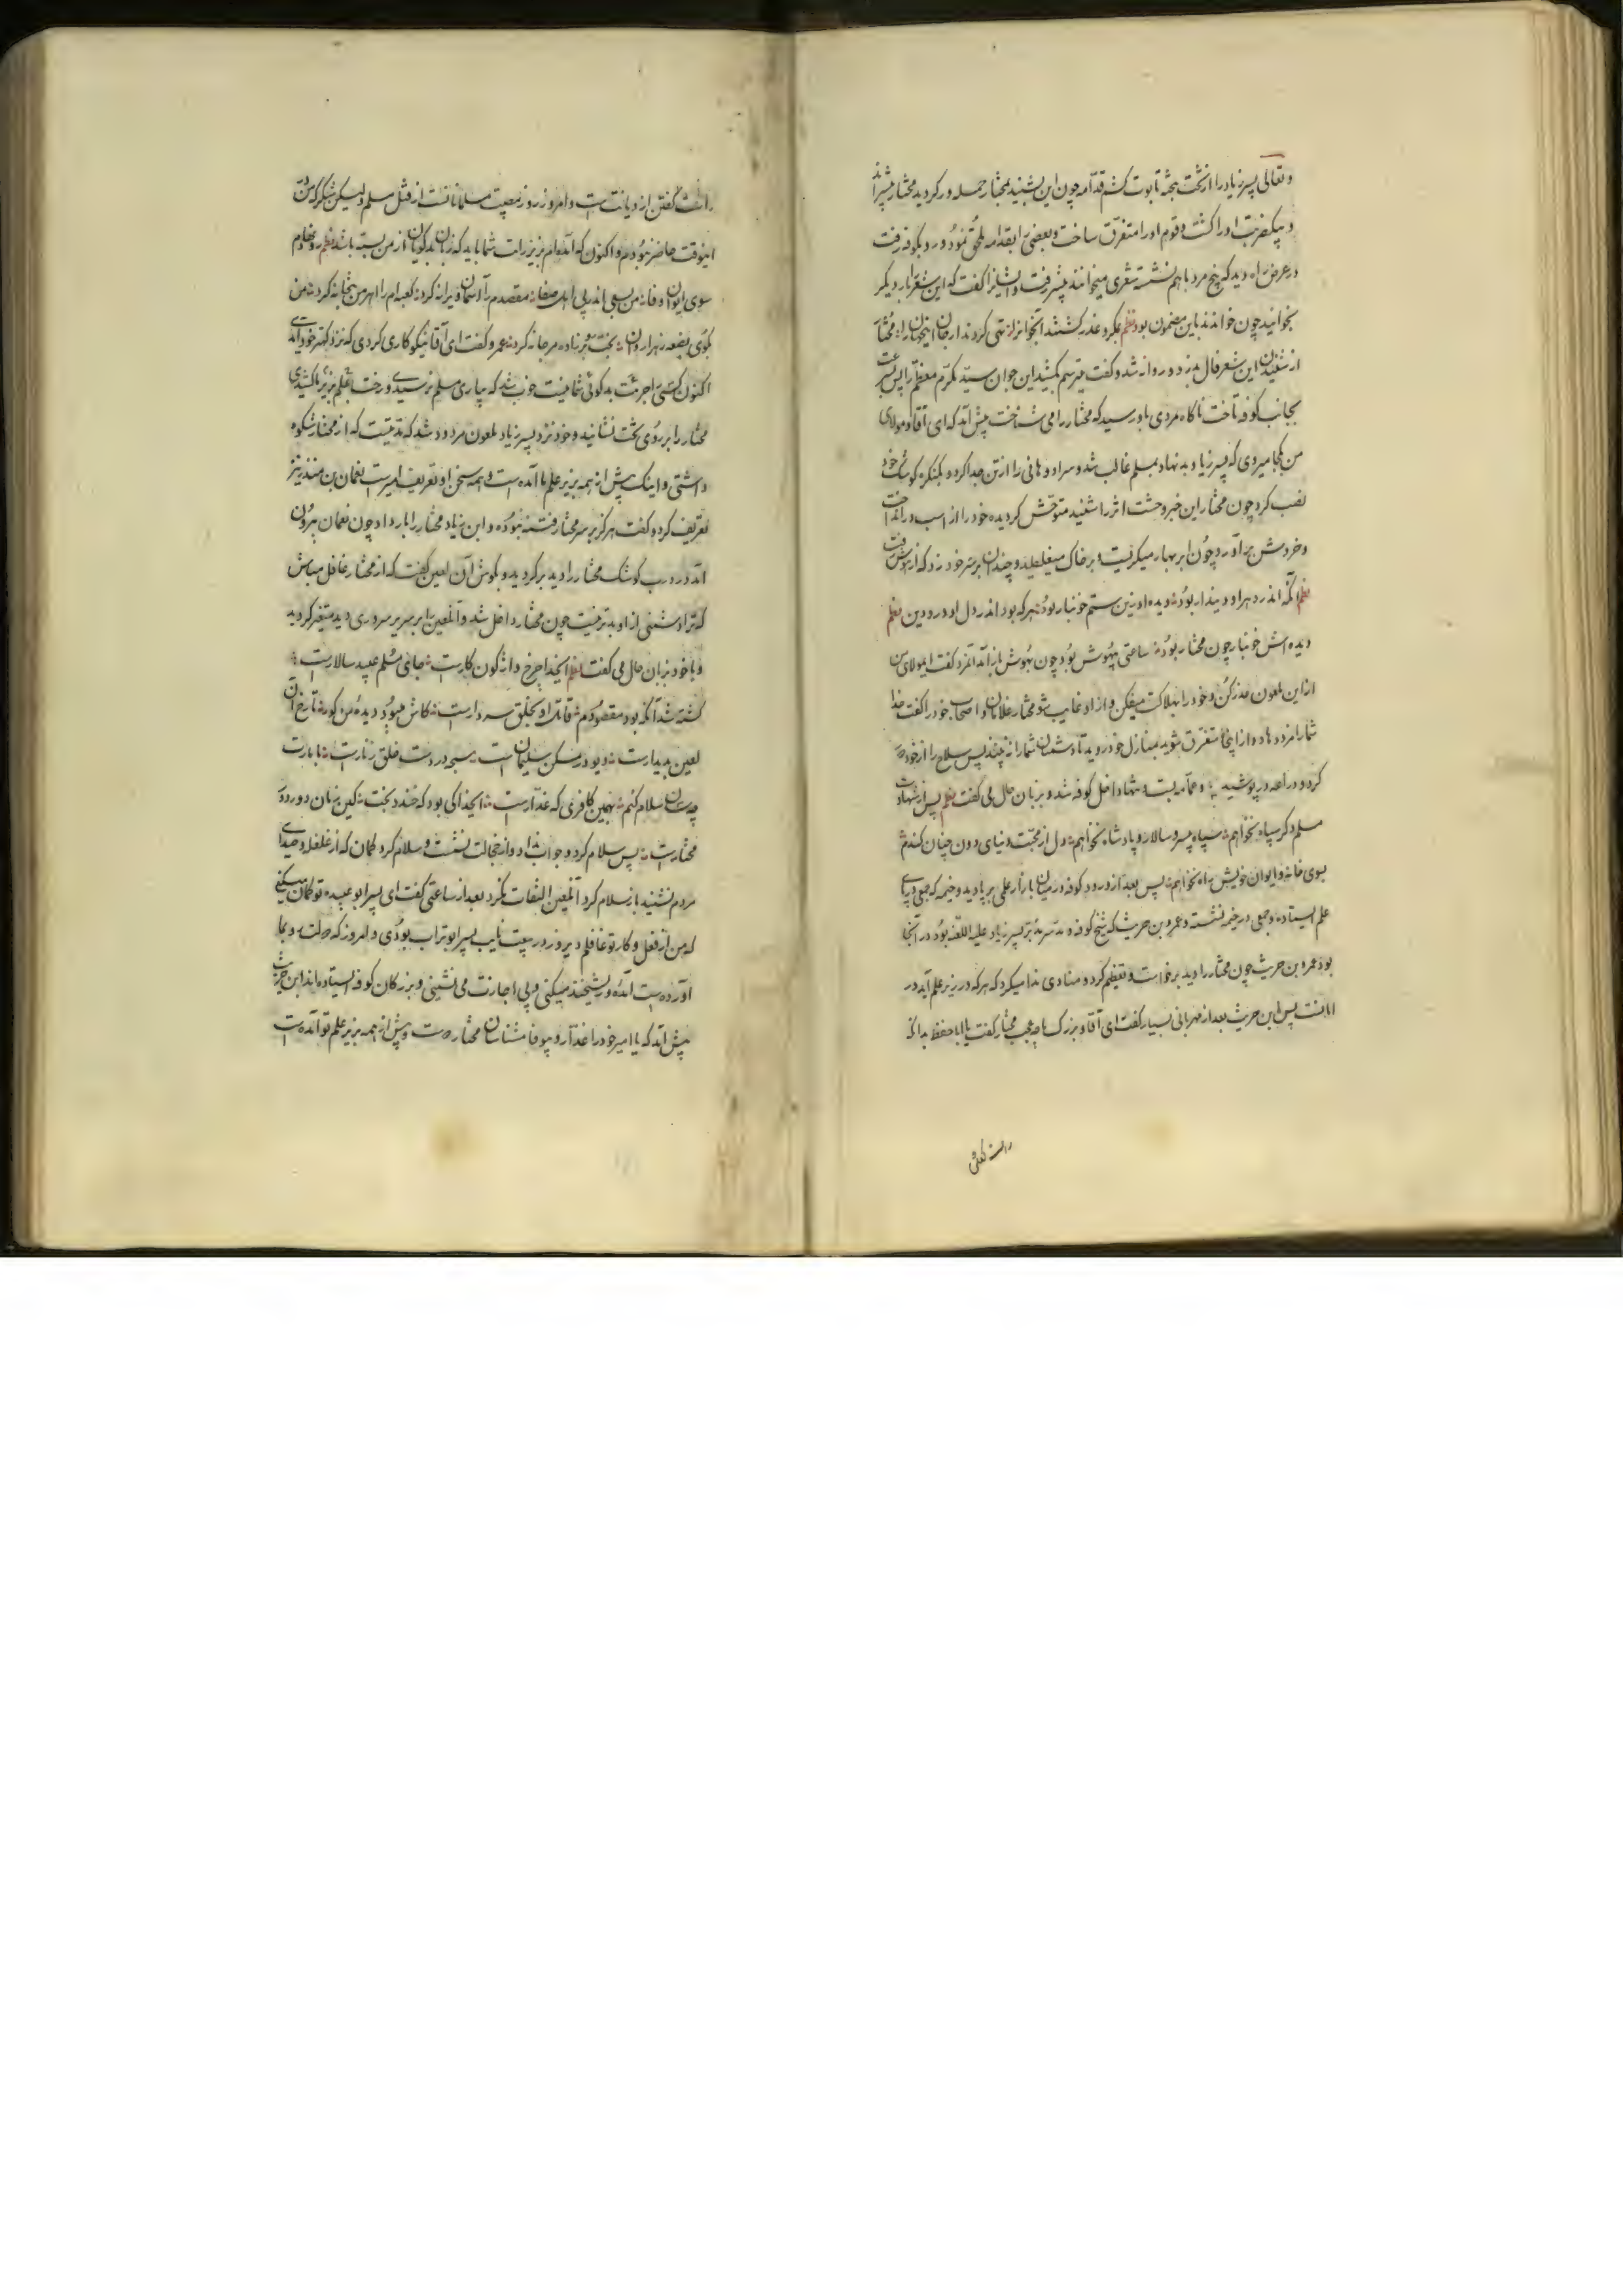 و تعالی پسر زیاد را از تخت بتخته تابوت کشد قدامه چون این بشنید بمختار حمله ور کردید مختار
و بیکضربت او را کشت و قوم او را متفرق ساخت و بعضی ابقدامه ملحق نمود و رو بکوفه رفت
در عرض راه دید که پنج مرد باهم نشسته شعری میخوانند پیش رفت و ایشانرا گفت که این شعر را بار دیگر
بخوانید چون خواندند باین مضمون بود نظم بمکر و غدر کشتند آنجوانرا تهی کردند از جان اینجهانرا مختار
از شنیدن این شعر فال بد زد و روانه شد و گفت میترسم بکشند این جوان سید مکرم معظم را پس بسرعت
بجانب کوفه تاخت ناکاه مردی باو رسید که مختار را می شناخت پیش آمد که ای آقا و مولای
من بکجا میروی که پسر زیاد بد نهاد بمسلم غالب شد و سر او و هانی را از تن جدا کرد و بکنکره کوشک خود
نصب کرد چون مختار این خبر وحشت اثر را شنید متوحش کردیده خود را از اسب در انداخت
و خروش برآورد چون ابر بهار میکریست و بر خاک میغلطید و چندان بر سر خود زد که از هوش رفت
نظم آنکه اندر دهر او دیندار بود دیده او زین ستم خونبار بود هر که بود اندر دل او درد دین نظم
دیده اش خونبار چون مختار بود ساعتی بیهوش بود چون بهوش باز آمد آنمرد گفت ایمولای من
از این ملعون حذر کن و خود را بهلاکت میفکن و از او غایب شو مختار غلامان و اصحاب خود را گفت خدا
شما را مزد دهاد و از اینجا متفرق شوید بمنازل خود روید تا دشمنان شما را نه بینند پس سلاح را از خود
کرد و دراعه در پوشید و عمامه بست و تنها داخل کوفه شد و بزبان حال می گفت نظم پس از شهادت
مسلم دکر سپاه نخواهم سپاه و پسر و سالار و پادشاه نخواهم دل از محبت دنیای دون چنان کندم
بسوی خانه و ایوان خویش راه نخواهم پس بعد از ورود کوفه در میان بازار علمی بر پا دید و خیمه که جمعی در پای
علم ایستاده و جمعی در خیمه نشسته و عمرو بن حریث که شیخ کوفه و پسر زیاد علیه اللعنه بود در آنجا
بود عمرو بن حریث چون مختار را دید برخاست و تعظیم کرد و منادی ندا میکرد که هر که در زیر علم آید در
امانست پس ابن حریث بعد از مهربانی بسیار گفت ای آقا و بزرک ما مختار گفت یا ابا حفظ بدانکه
راست گفتن
راست گفتن از دیانت است و امروز روز مصیبت مسلمانانست از قتل مسلم ولیکن شکر که من در
اینوقت حاضر نبودم و اکنون که آمده ام بزیر رایت شما باید که زبان بدکویان از من بسته باشد نظم
سوی ایوان وفا من بسعی اندر پی اهل صفا مقصدم را آسمان ویرانه کرد کعبه ام را اهرمن بتخانه کرد من
بکوی بضعه زهرا روان مرجانه کرد عمرو گفت ای آقا نیکو کاری کردی که نزد کهتر خود آمدی
اکنون کسی را جرئت بد کوئی شما نیست خوب شد که بیاری مسلم نرسیدی و رخت بعلم یزید ما کشیدی
مختار را بر روی تخت نشانید و خود نزد پسر زیاد ملعون مردود شد که مدتیست که از مختار شکوه
داشتی و اینک پیش از همه بزیر علم ما آمده است و همه سخن او تعریف امیر است نعمان بن منذر نیز
تعریف کرد و گفت هرکز بر سر مختار فتنه نبوده و ابن زیاد مختار را بار داد چون نعمان بیرون
آمد در درب کوشک مختار را دید برکردید و بکوش آن لعین گفت که از مختار غافل مباش
که ترا دشمنی از او بدتر نیست چون مختار داخل شد و آنلعین را بر سریر سروری دید متغیر کردید
و با خود بزبان حال می گفت نظم ایخدا چرخ واژکون کارست جای مسلم عبید سالارست
کشته شد آنکه بود مقصودم قاتل او بخلق سردارست کاش میبود دیده من کور تا رخ آن
لعین بدیدارست دیو در مسکن سلیمان است سبحه در دست خلق زنارست
چه سان سلام کنم بچنین کافری که غدارست ایخدا کی بود که خندد بخت کین زمان دور دور
مختارست پس سلام کرد و جواب نداد و از خجالت بنشست و سلام کرد گمان که از غلغله و صدای
مردم نشنید باز سلام کرد آنلعین التفات نکرد بعد از ساعتی گفت ای پسر ابو عبیده تو گمان میکنی
که من از فعل و کار تو غافلم دیروز در بیعت نایب پسر ابوتراب بودی و امروز که دولت رو بما
آورده است آمده و ریشخند میکنی و بی اجازت می نشینی و بزرکان کوفه ایستاده اند ابن حریث
پیش آمد که یا امیر خود را غدار و بیوفا مشناسان مختار و پیش از همه بزیر علم تو آمده است